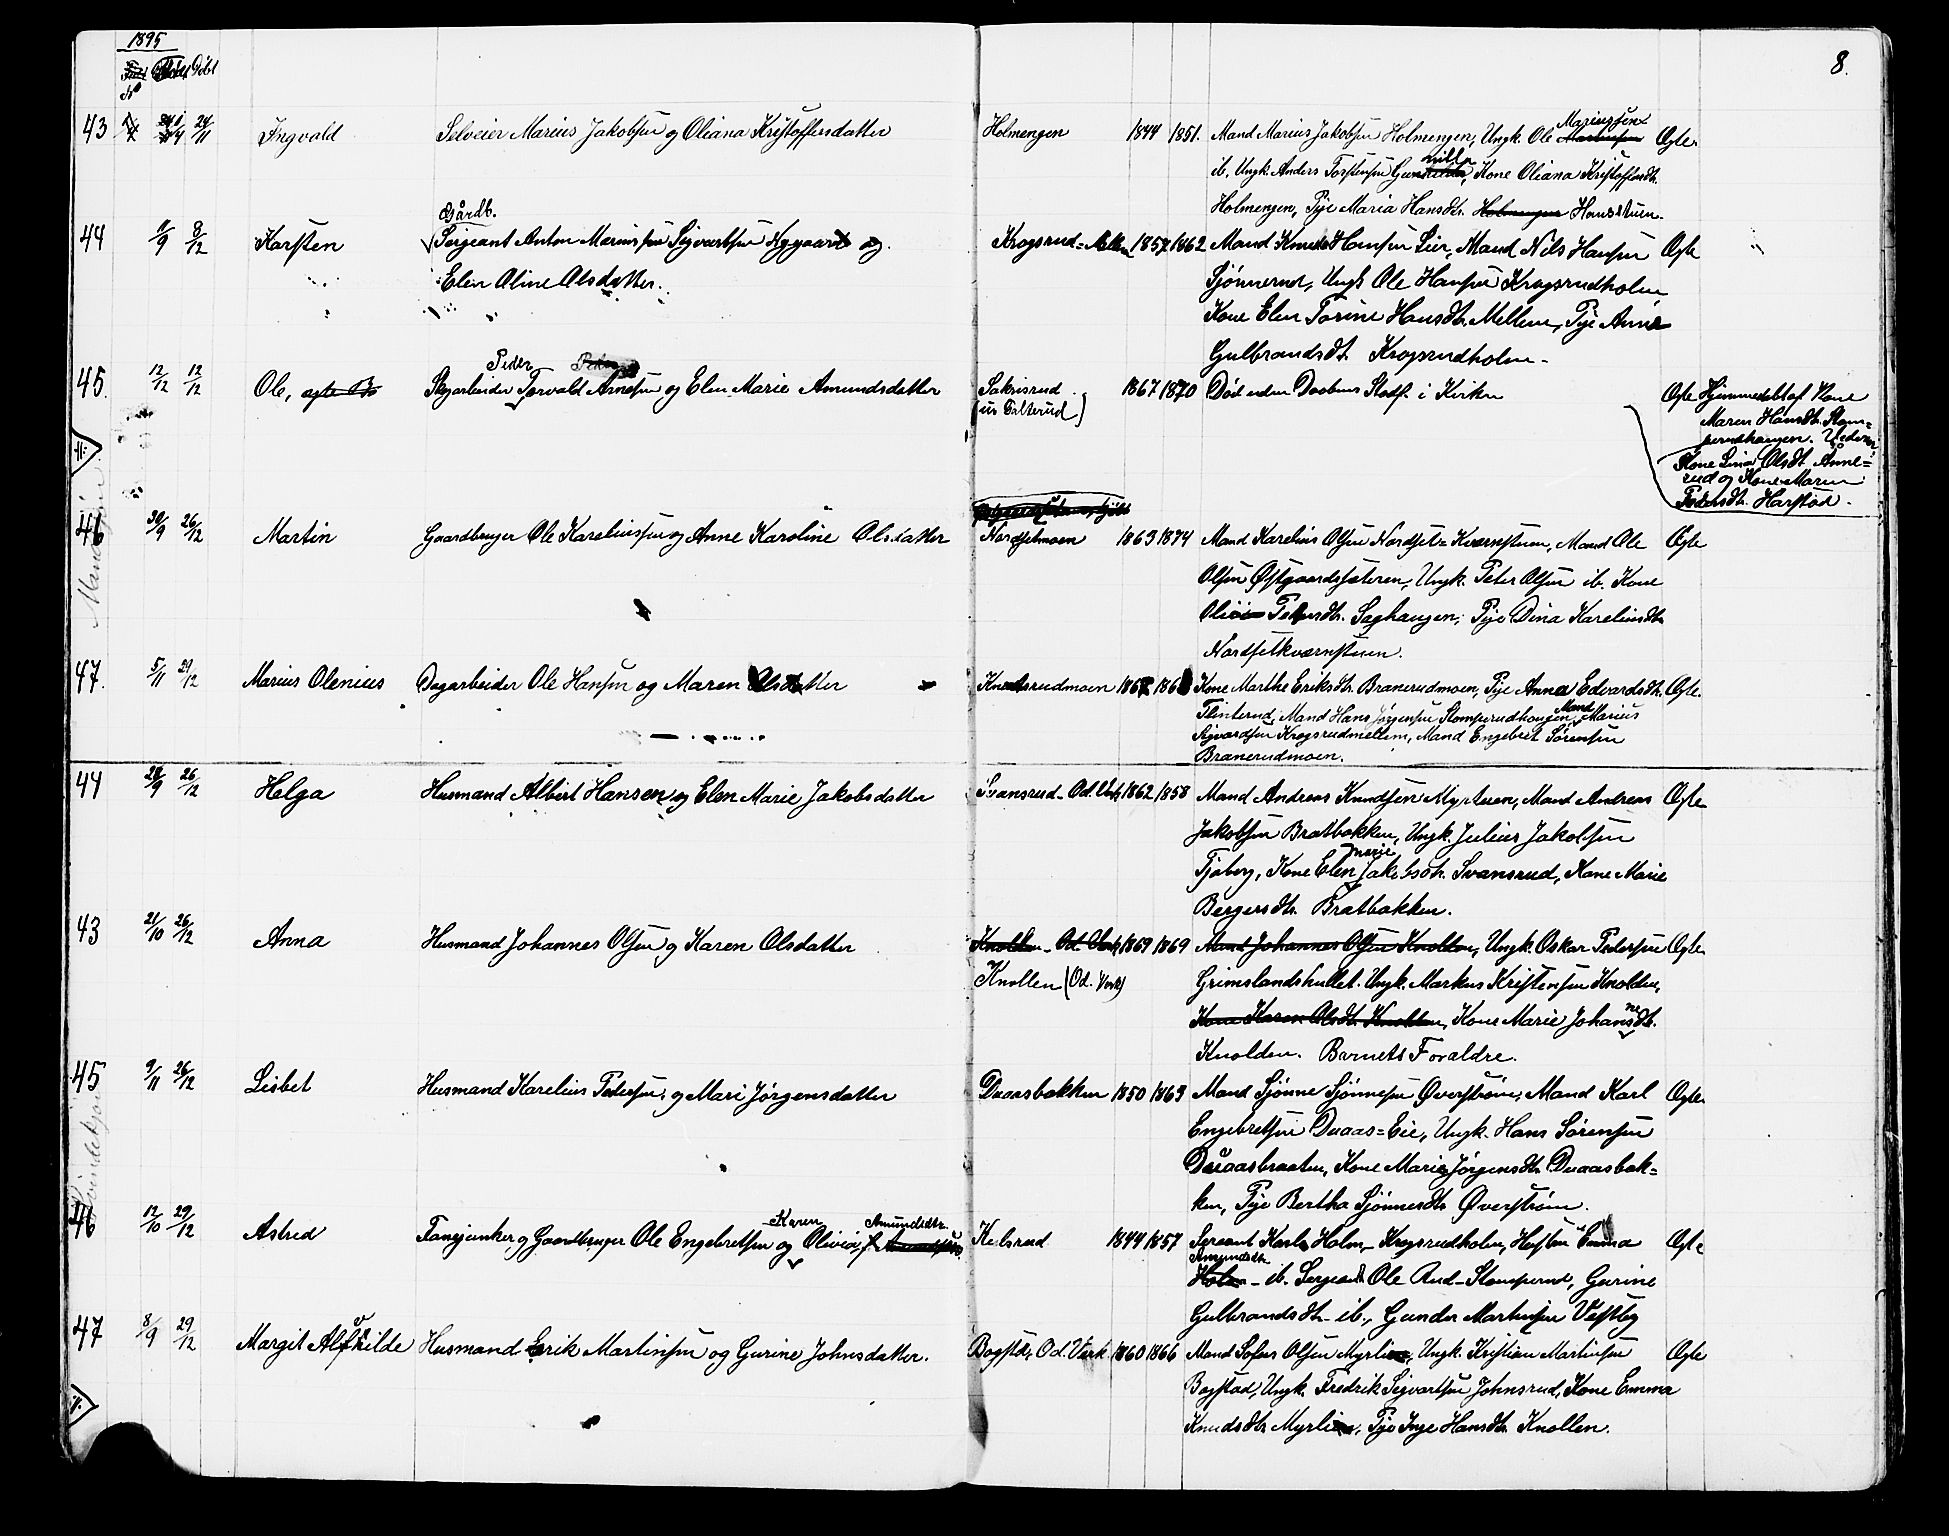 1895
8.
No Født Døbt
43 24/11 Ingvald Selveier Marius Jakobsen og Oliana Kristoffersdatter Holmengen 1844 1851. Mand Marius Jakobsen Holmengen, Ungk. Ole Mariussen Ægte
ib, Ungk. Anders Torstensen Kone Oliana Kristoffersdt.
Holmengen, Pige Maria Hansdt. Holmengen Hansstuen.
Gårdb.
44 9/9 8/12 Karsten Sergeant Anton Mariussen Sigvartsen Nygaard og Krogsrud=Mellem 1857 1862 Mand Knud Hansen Lier, Mand Nils Hansen Ægte
Elen Aline Olsdatter. Sjønnerud, Ungk Ole Hansen Krogsrudholm
Kone Elen Torine Hansdt. Mellem, Pige Anne
Gulbrandsdt. Krogsrudholm.
Peder
45 12/12 12/12 Ole, ægte B. Dagarbeider Torvald Arnesen og Elen Marie Amundsdatter Sakrisrud 1867 1870 Død uden Daabens Stadf. i Kirken Ægte Hjemmedøbt af Kone
(us Falkerud) Maren Hansdt. Stom=
perudhaugen. Fadere:
Kone Lina Olsdt. Anne=
rud og Kone Maren
Pedersdt. Harstad.
:11:
Mandkjøn
46 30/9 26/12 Martin Gaardbruger Ole Kareliussen og Anne Karoline Olsdatter Nordsetmoen 1863 1874 Mand Karelius Olsen Nordset=Kværnstuen, Mand Ole Ægte
Olsen Østgaardssæteren, Ungk. Peter Olsen ib. Kone
Pedersdt. Saghaugen, Pige Dina Kareliusdt.
Nordsetkværnstuen.
47. 5/11 29/12 Marius Olenius Dagarbeider Ole Hansen og Maren Olsdatter Knatsrudmoen Kone Marthe Eriksdt. Branerudmoen, Pige Anna Edvardsdt. Ægte.
Flinterud, Mand Hans Jørgensen Stomperudhaugen, Mand Marius
Sigvardsen Krogsrudmellem, Mand Engebret Sørensen
Branerudmoen.
44 28/9 26/12 Helga Husmand Albert Hansen og Elen Marie Jakobsdatter Svansrud - Od. Verk 1862 1858 Mand Andreas Knudsen Myrstuen, Mand Andreas Ægte
Jakobsen Bratbakken, Ungk. Julius Jakobsen
Tjøberg, Kone Elen Marie Jakobsdt. Svansrud, Kone Marie
Bergersdt. Bratbakken.
43 21/10 26/12 Anna Husmand Johannes Olsen og Karen Olsdatter Knollen - Od. Verk 1869 1869 Mand Johannes Olsen Knollen, Ungk. Oskar Pedersen Ægte
Knollen (Od. Verk) Grimslandshullet. Ungk. Markus Kristensen Knolden,
Kone Karen Olsdt. Knollen, Kone Marie Johannesdt.
Knolden. Barnets Forældre.
45 9/11 26/12 Lisbet Husmand Karelius Pedersen og Mari Jørgensdatter Duaasbakken 1850 1863 Mand Sjønne Sjønnesen Øverstrøm, Mand Karl Ægte
Engebretsen Duaas=Eie, Ungk. Hans Sørensen
Duaasbraaten, Kone Marie Jørgensdt. Duaasbak=
ken, Pige Bertha Sjønnesdt. Øverstrøm.
Kvindekjøn
46 12/10 29/12 Astrid Fanejunker og Gaardbruger Ole Engebretsen og Karen Olivia Amundsdt. Kelsrud 1844 1857 Sergeant Karl Holm, Krogsrudholm, Hustru Emma Ægte
Amundsdt.
Holm - ib. Sergeant Ole Rud - Stomperud, Gurine
Gulbrandsdt. ib., Gunder Martinsen Vestby
47 8/9 29/12 Margit Alfhilde Husmand Erik Martinsen og Gurine Johnsdatter. Bogstd, Od. Værk 1860 1866 Mand Sofus Olsen Myrlien, Ungk. Kristian Martinsen Ægte
Bogstad, Ungk. Fredrik Sigvartsen Johnsrud, Kone Emma
Knudsdt. Myrlien, Pige Inge Hansdt. Knollen.